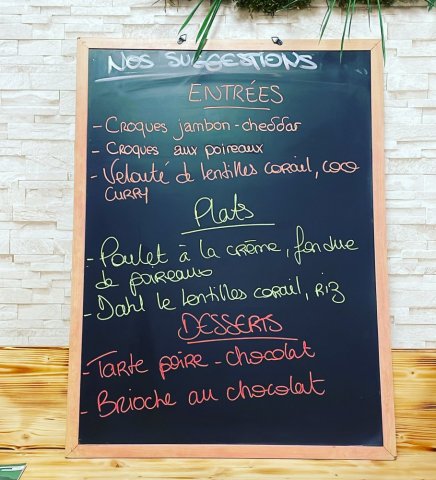 NOS SUGGESTIONS
ENTRÉES
- Croques jambon - cheddar
- Croques aux poireaux
- Velouté de lentilles corail, coco
curry
Plats
- Poulet à la crème, fondue
de poireaux
- Dahl de lentilles corail, riz
DESSERTS
- Tarte poire - chocolat
- Brioche au chocolat